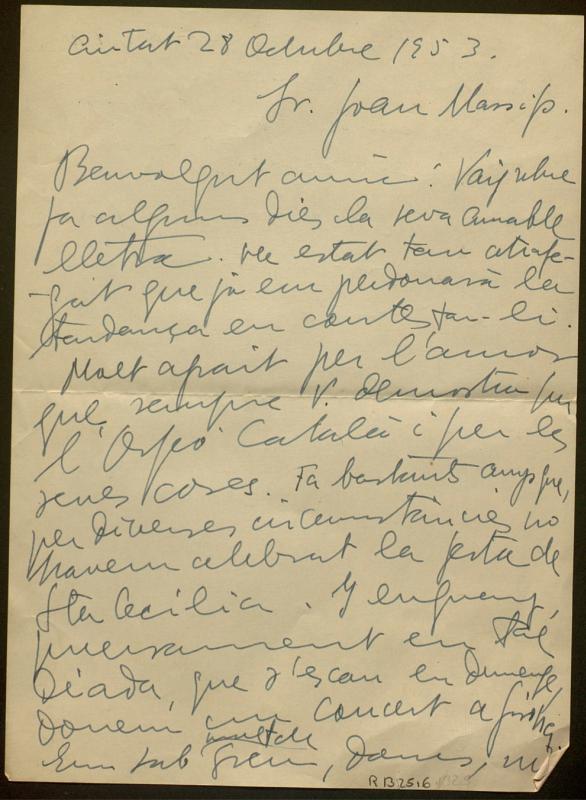 Ciutat 28 Octubre 1953.
Sr. Joan Massip.
Benvolgut amic: Vaig rebre
fa alguns dies la seva amable
lletra. He estat tan atrafe-
gat que ja em perdonarà la
tardança en contestar-li.
Molt aprait per l'amor
que sempre V. demostra per
l'Orfeó Català i per les
seves coses. Fa bastants anys que,
per diverses circumstàncies no
havem celebrat la festa de
Sta Cecilia. Y enguany,
precisament en tal
Diada, que s'escau en diumenge,
donem un concert a
Em sab molt de greu, doncs, no
RB2516